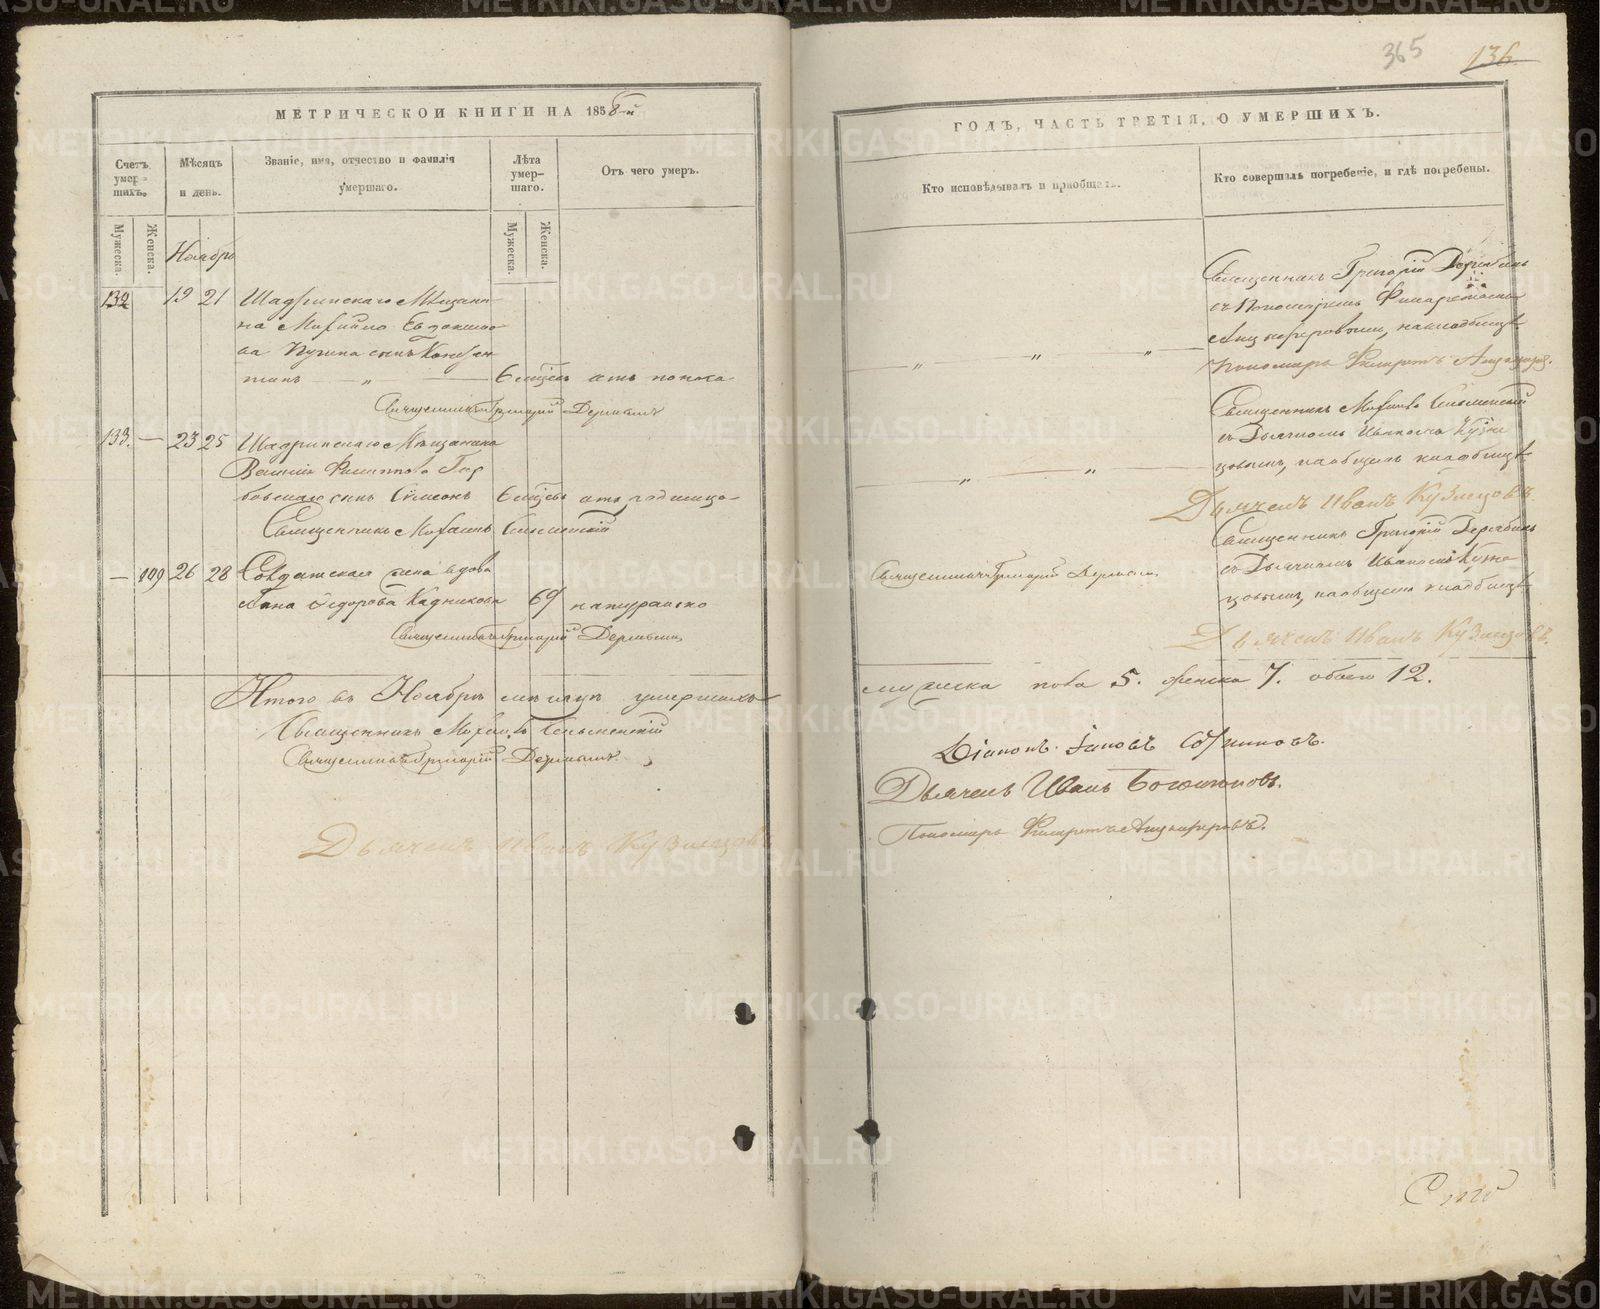 365 136
МЕТРИЧЕСКОЙ КНИГИ НА 1858-й
ГОДЪ, ЧАСТЬ ТРЕТІЯ, О УМЕРШИХЪ.
Счетъ умер-шихъ.
Мѣсяцъ и день.
Званіе, имя, отчество и фамилія умершаго.
Лѣта умер-шаго.
Отъ чего умеръ.
Кто исповѣдывалъ и пріобщалъ.
Кто совершалъ погребеніе, и гдѣ погребены.
Мужеска.
Женска.
Мужеска.
Женска.
Ноябрь
132 19 21 Шадринскаго Мѣщани-
на Михаила Евдокимо-
ва сынъ Констан-
тинъ — „ — 6 мѣсяц. отъ поноса
Священникъ Григорій Дерябинъ
133. — 23 25 Шадринскаго Мѣщанина
Василія Филиппова
сынъ Симеонъ 6 мѣсяц. отъ родимца
Священникъ Михаилъ
— 109 26 28 Солдатская жена вдова
Анна Федорова Кадникова 69 натурально
Священникъ Григорій Дерябинъ
Итого въ Ноябрѣ мѣсяцѣ умершихъ
Священникъ Михаилъ
Священникъ Григорій Дерябинъ
Дьячекъ Иванъ Кузнецовъ
Священникъ Григорій Дерябинъ
съ Пономаремъ Филаретомъ
Анциферовымъ, на кладбищѣ
Пономарь Филаретъ Анциферовъ.
Священникъ Михаилъ
съ Дьячкомъ Иваномъ Кузне-
цовымъ, на общемъ кладбищѣ
Дьячекъ Иванъ Кузнецовъ
Священникъ Григорій Дерябинъ
Священникъ Григорій Дерябинъ
съ Дьячкомъ Иваномъ Кузне-
цовымъ, на общемъ кладбищѣ
Дьячекъ Иванъ Кузнецовъ.
мужеска пола 5. женска 7. обоего 12.
Діаконъ Іаковъ
Дьячекъ Иванъ
Пономарь Филаретъ Анциферовъ.
METRIKI.GASO-URAL.RU